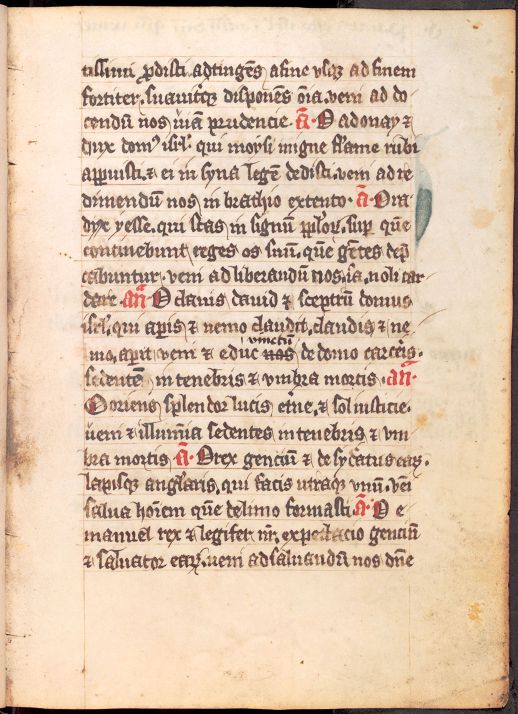 tissimi ꝓdisti. adtingēs afine vsqꝫ ad finem
fortiter. suauit᷑qꝫ disponēs ōia. veni ad do
cendū nos uiam prudencie. A̅. O adonay ⁊
dux domꝰ isr̄l. qui moysi inigne flame rubi
apparuisti. ⁊ ei in syna legē dedisti. veni ad re
dimendū nos in brachio extento. A̅. O ra
dyx yesse. qui stas in signum pplo℞. sup̄ quē
continebunt reges os suū. quē gētes dep̄
cabuntur. veni ad liberandū nos. iā. noli tar
dare. An̄. O clauis dauid ⁊ sceptrū domus
isr̄l. qui aperis ⁊ nemo claudit. claudis ⁊ ne
mo. aperit. veni ⁊ educ nos vinctū de domo carceris.
sedentē in tenebris ⁊ vmbra mortis. An̄.
O oriens splendor lucis etīne. ⁊ sol iusticie.
ueni ⁊ illumīa sedentes in tenebris ⁊ vm
bra mortis A̅. O rex genciū ⁊ desyd̓atus ea℞.
lapisqꝫ anglaris. qui facis utraqꝫ vnū. veni
salua hoīem quē delimo formasti A̅. O e
manuel rex ⁊ legifer nr̄. expectacio genciū
⁊ saluator ea℞. ueni adsaluandū nos dn̄e